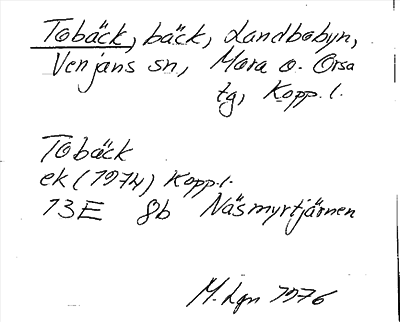 Tobäck, bäck, Landbobyn,
Venjans sn, Mora o. Orsa
tg, Kopp. l.
Tobäck
ek (1974) Kopp.l.
13E 8b Näsmyrtjärnen
M. Lgn 1976